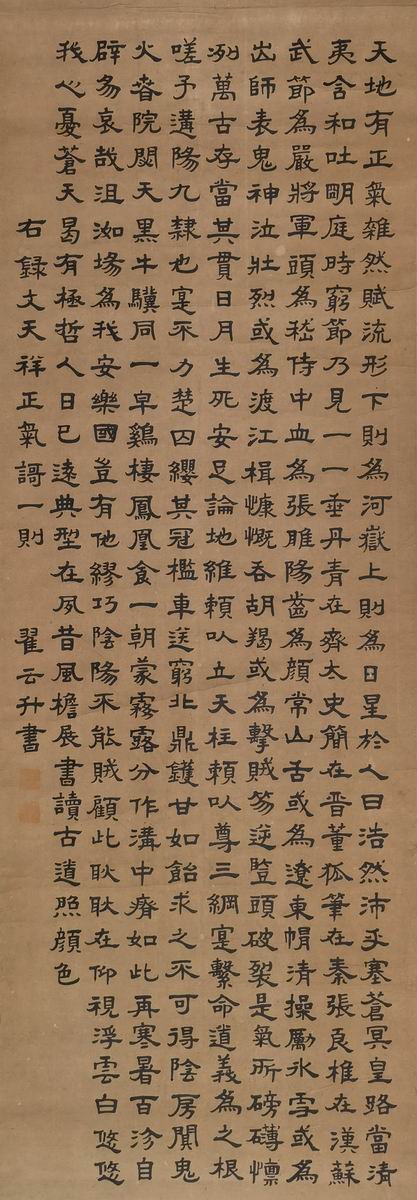 天地有正氣雜然賦流形下則為河嶽上則為日星於人曰浩然沛乎塞蒼冥皇路當清
夷含和吐朙庭時窮節乃見一一垂丹青在齊太史簡在晋董狐筆在秦張良椎在漢蘇
武節為嚴將軍頭為嵇侍中血為張睢陽齒為顏常山舌或為遼東帽清操勵冰雪或為
出師表鬼神泣壯烈或為渡江楫慷慨吞胡羯或為擊賊笏逆豎頭破裂是氣所磅礴懍
冽萬古存當其貫日月生死安足論地維賴以立天柱賴以尊三綱寔繫命道義為之根
嗟予遘陽九隸也寔不力楚囚纓其冠檻車送窮北鼎鑊甘如飴求之不可得陰房闃鬼
火春院閟天黑牛驥同一皁鷄棲鳳凰食一朝蒙霧露分作溝中瘠如此再寒暑百沴自
辟易哀哉沮洳場為我安樂國豈有他繆巧陰陽不能賊顧此耿耿在仰視浮雲白悠悠
我心憂蒼天曷有極哲人日已遠典型在夙昔風檐展書讀古道照顏色
右録文天祥正氣謌一則 翟云升書